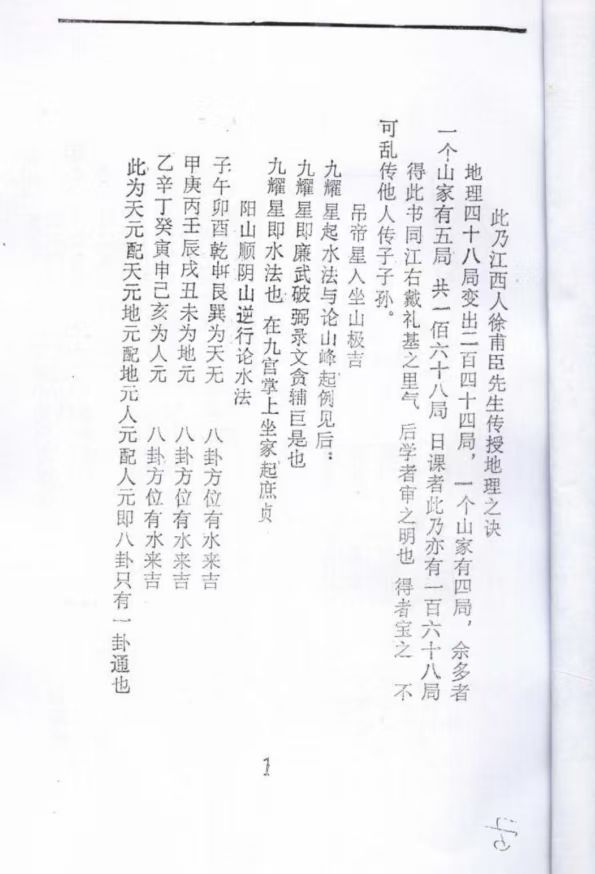 此乃江西人徐甫臣先生传授地理之诀
地理四十八局变出二百四十四局，一个山家有四局，余多者
一个山家有五局 共一佰六十八局 日课者此乃亦有一百六十八局
得此书同江右戴礼基之里气 后学者审之明也 得者宝之 不
可乱传他人传子子孙。
吊帝星入坐山极吉
九耀星起水法与论山峰起例见后：
九耀星即廉武破弼录文贪辅巨是也
九耀星即水法也 在九宫掌上坐家起庶贞
阳山顺阴山逆行论水法
子午卯酉乾坤艮巽为天无 八卦方位有水来吉
甲庚丙壬辰戌丑未为地元 八卦方位有水来吉
乙辛丁癸寅申己亥为人元 八卦方位有水来吉
此为天元配天元地元配地元人元配人元即八卦只有一卦通也
1